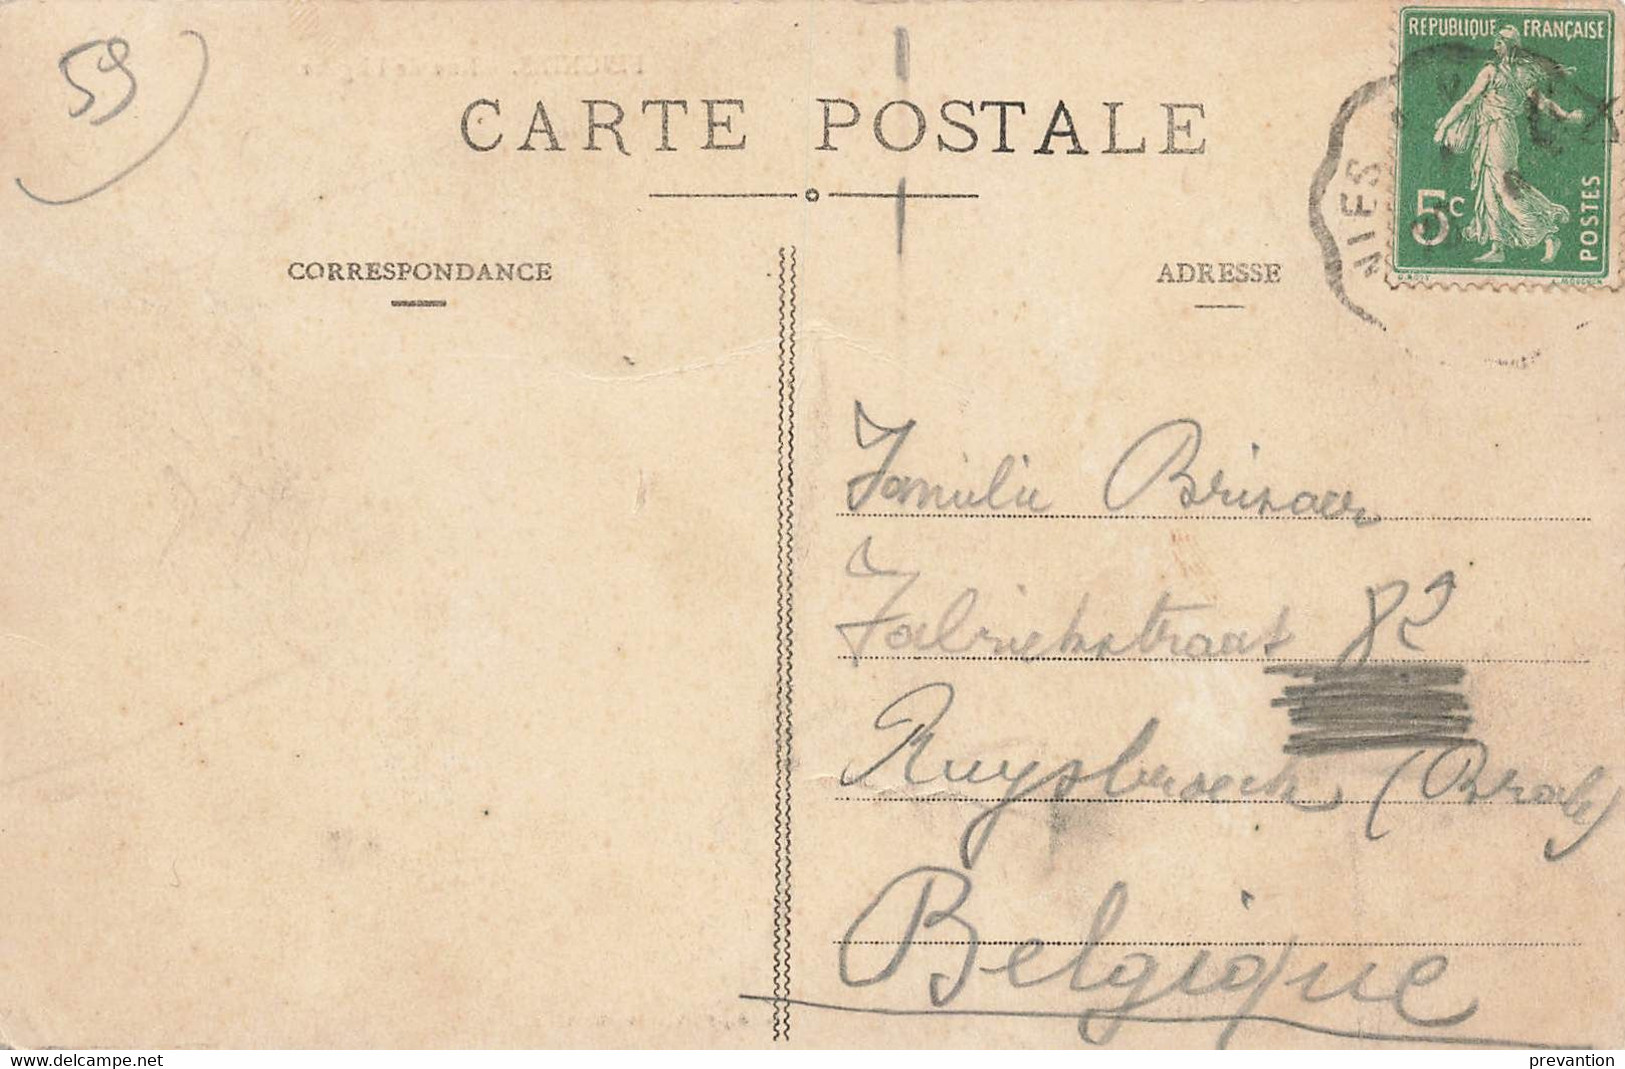 59
CARTE POSTALE
REPUBLIQUE FRANÇAISE
5c
POSTES
NIES
CORRESPONDANCE
ADRESSE
Familie
Fabriekstraat 82
Ruysbroeck (Brab)
Belgique
delcampe.net
prevantion